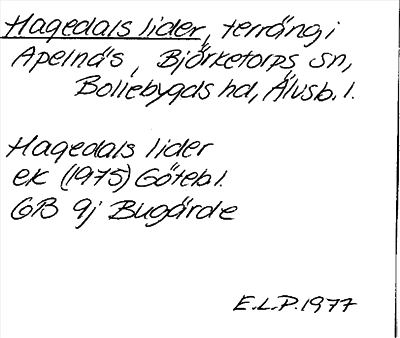 Hagedals lider, terräng i
Apelnäs, Björketorps sn,
Bollebygds hd, Älvsb. l.
Hagedals lider
ek (1975) Götebl.
GB 9j Bugärde
E.L.P. 1977